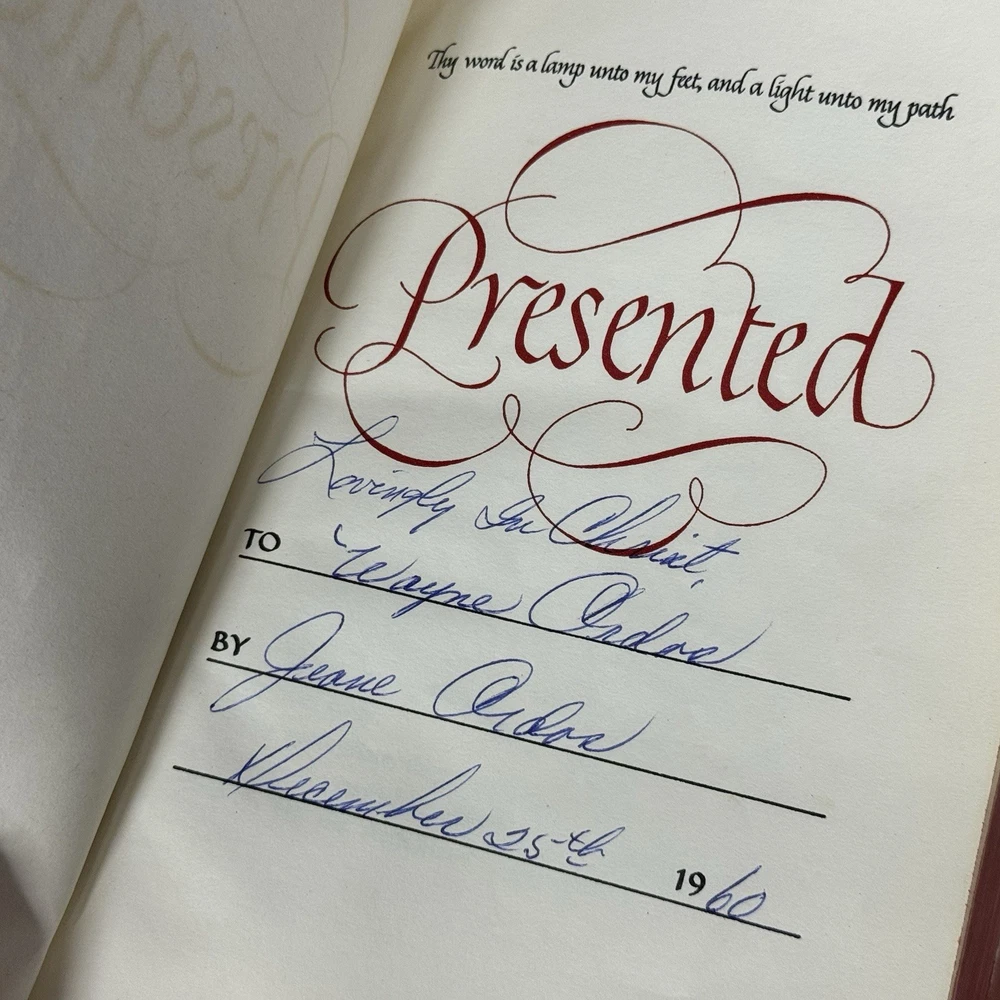 Thy word is a lamp unto my feet, and a light unto my path
Presented
Lovingly In Christ,
TO Wayne
BY Jeane
December 25th 1960